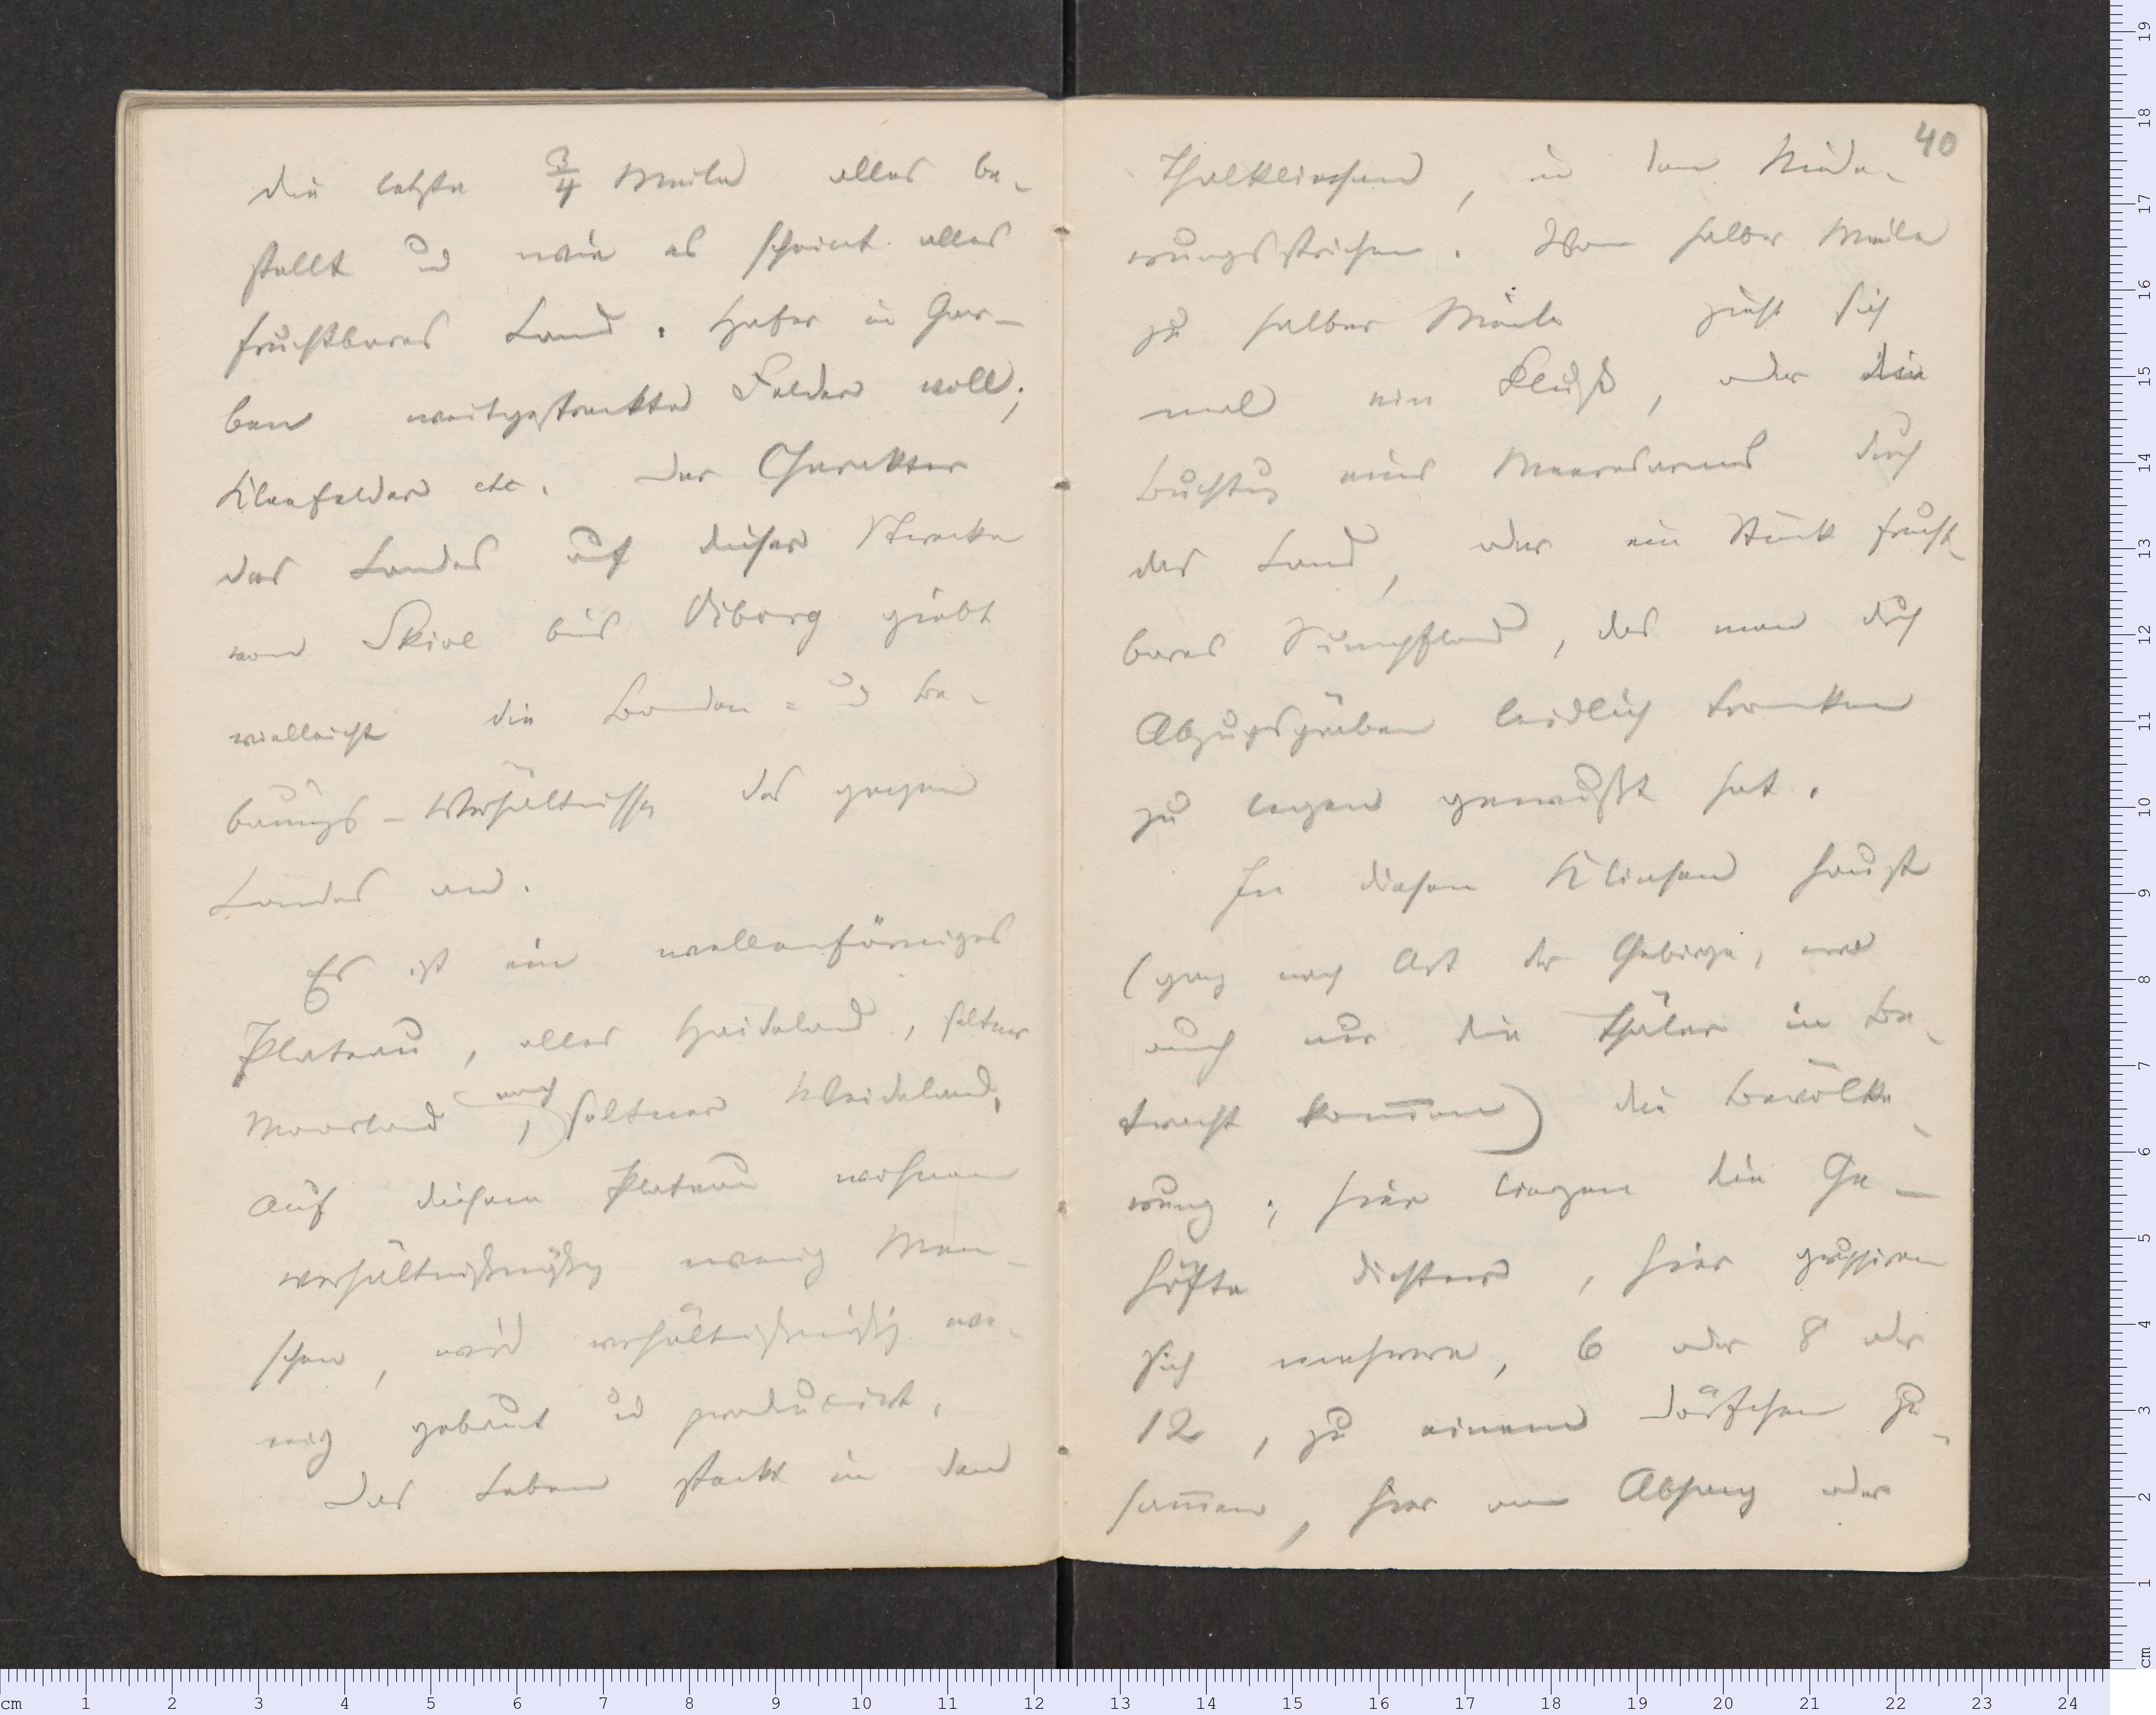 die letzte 3/4 Meile alles be-
stellt und wie es scheint alles
fruchtbares Land. Hafer in Gar-
ben weitgestreckte Felder voll;
Kleefelder etc. Der Charakter
des Landes auf dieser Strecke
von Skive bis Viborg giebt
vielleicht die Boden- und Be-
bauungs-Verhältnisse des ganzen
Landes an.
Es ist ein wellenförmiges
Plateau, alles Haideland, seltner
Moorland, noch seltner Weideland,
Auf diesem Plateau wohnen
verhältnißmäßig wenig Men-
schen, wird verhältnißmäßig we-
nig gebaut und producirt.
Das Leben steckt in den
40
Thalklinsen, in den Niede-
rungsstrichen. Von halber Meile
zu halber Meile zieht sich
mal ein Fluß, oder die
Buchtung eines Meeresarms durch
das Land, oder ein Stück frucht-
bares Sumpfland, das man durch
Abzugsgräben leidlich trocken
zu legen gewußt hat.
In diesen Klinsen haust
(ganz nach Art der Gebirge, wo
auch nur die Thäler in Be-
tracht kommen) die Bevölke-
rung; hier liegen die Ge-
höfte dichter, hier gruppiren
sich mehrere, 6 oder 8 oder
12, zu einem Dörfchen zu-
sammen, hier am Abhang oder